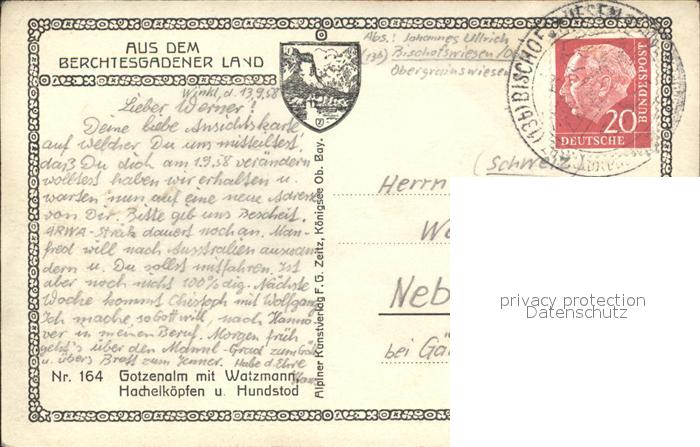 AUS DEM
BERCHTESGADENER LAND
Abs.: Johannes Ullrich
(13b) Bischofswiesen/O
Obergrainswiesen
Winkl, d. 13.9.58
Lieber Werner!
Deine liebe Ansichtskarte
auf welcher Du uns mitteiltest,
daß Du dich am 1.9.58 verändern
wolltest haben wir erhalten u.
warten nun auf eine neue Adresse
von Dir. Bitte geb uns Bescheit.
ARWA-Streik dauert noch an. Man-
fred will nach Australien auswan-
dern u. Du sollst mitfahren. Ist
aber noch nicht 100%dig. Nächste
Woche kommt Christoph mit Wolfgang.
Ich mache, so Gott will, nach Hanno-
ver in meinen Beruf. Morgen früh
geht's über den Mannl-Grad zum Göll
u. übers Brett zum Jenner. Habe d. Ehre
Nr. 164 Gotzenalm mit Watzmann,
Hachelköpfen u. Hundstod
Alpiner Kunstverlag F. G. Zeitz, Königsee Ob. Bay.
(13b) BISCHOFSWIESEN
20
DEUTSCHE
BUNDESPOST
(Schweiz)
Herrn
We
Neb
bei Gä
privacy protection
Datenschutz